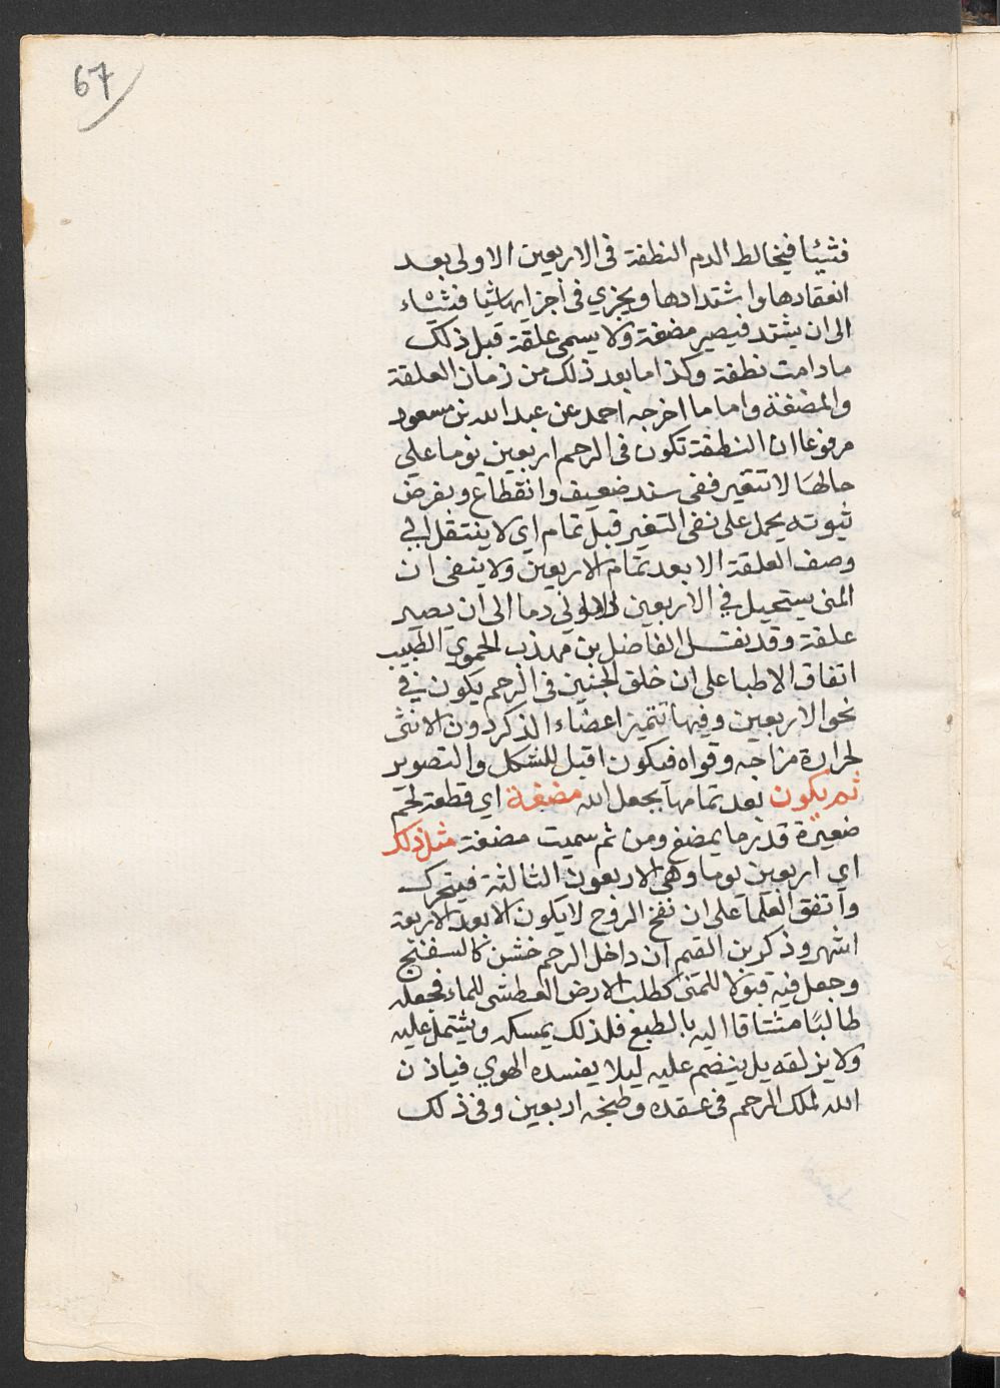 67
فشيئا فيخالط الدم النطفة فى الاربعين الاولى بعد
انعقادها واشتدادها ويجزي فى اجزايها شيا فشياء
الى ان يشتد فيصير مضغة ولا يسمى علقة قبل ذلك
ما دامت نطفة وكذا ما بعد ذلك من زمان العلقة
والمضغة واما ما اخرجه احمد عن عبد الله بن مسعود
مرفوعا ان النطفة تكون فى الرحم اربعين يوما على
حالها لا تتغير ففى سند ضعيف وانقطاع وبفرض
ثبوته يحمل على نفى التغير قبل تمام اي لا ينتقل الي
وصف العلقة الا بعد تمام الاربعين ولا ينفى ان
المنى يستحيل في الاربعين الاولي دما الى ان يصير
علقة وقد نقل الفاضل بن مهذب الحموي الطبيب
اتفاق الاطبا على ان خلق الجنين فى الرحم يكون في
نحو الاربعين وفيها تتميز اعضاء الذكر دون الانثى
لحرارة مزاجه وقواه فيكون اقبل للشكل والتصوير
ثم يكون بعد تمامها بجعل الله مضغة اي قطعة لحم
صغيرة قدر ما يمضغ ومن ثم سميت مضغة مثل ذلك
اي اربعين يوما وهى الاربعون الثالثة فيتحرك
واتفق العلما على ان نفخ الروح لا يكون الا بعد الاربعة
اشهر وذكر بن القيم ان داخل الرحم خشن كالسفنج
وجعل فيه قبولا للمنى كطلب الارض العطشى للماء فجعله
طالبا مشتاقا اليه بالطبع فلذلك يمسكه ويشتمل عليه
ولا يزلقه بل ينضم عليه ليلا يفسده الهوي فياذن
الله لملك الرحم فى عقده وطبخه اربعين وفى ذلك